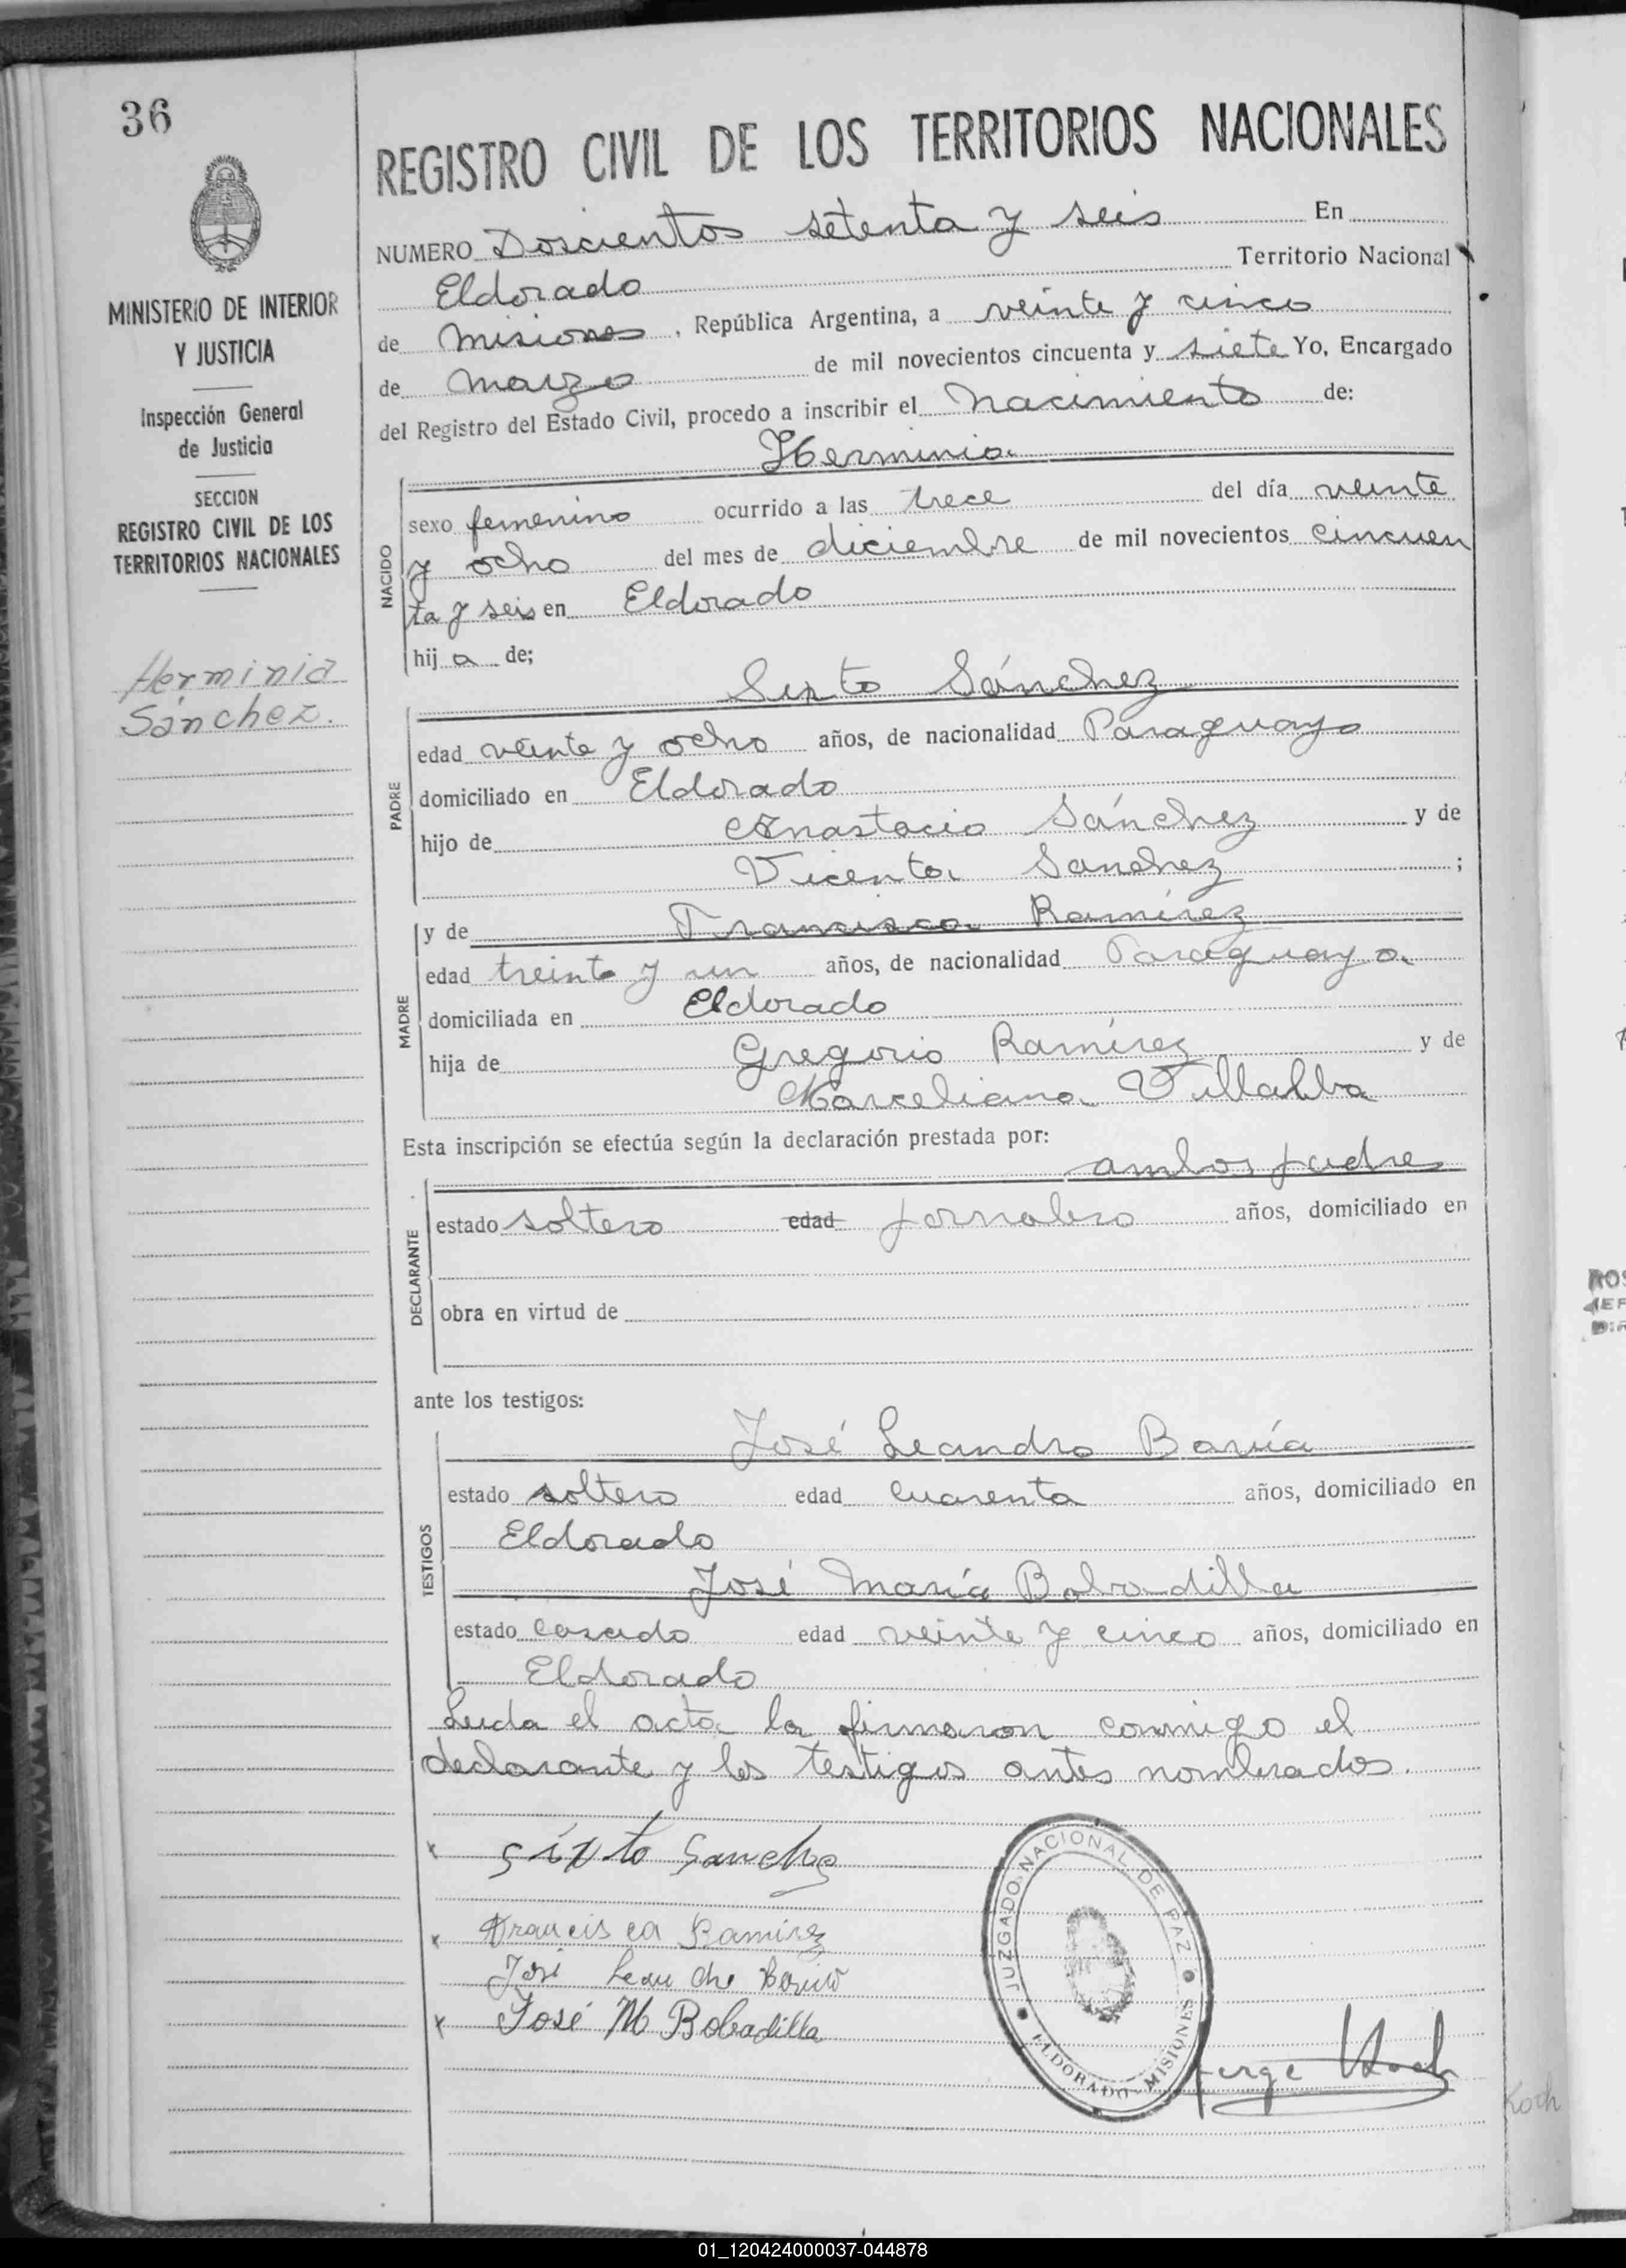 36
MINISTERIO DE INTERIOR
Y JUSTICIA
Inspección General
de Justicia
SECCION
REGISTRO CIVIL DE LOS
TERRITORIOS NACIONALES
Herminia
Sánchez.
REGISTRO CIVIL DE LOS TERRITORIOS NACIONALES
NUMERO Doscientos setenta y seis En
Eldorado Territorio Nacional
de Misiones, República Argentina, a veinte y cinco
de marzo de mil novecientos cincuenta y siete Yo, Encargado
del Registro del Estado Civil, procedo a inscribir el Nacimiento de:
Herminia
NACIDO
sexo femenino ocurrido a las trece del día veinte
y ocho del mes de diciembre de mil novecientos cincuen
ta y seis en Eldorado
hij a de;
Sixto Sánchez
PADRE
edad veinte y ocho años, de nacionalidad Paraguayo
domiciliado en Eldorado
hijo de Anastacio Sánchez y de
Vicenta Sanchez ;
MADRE
y de Francisca Ramírez
edad treinta y un años, de nacionalidad Paraguaya
domiciliada en Eldorado
hija de Gregorio Ramírez y de
Marceliana Villalba
Esta inscripción se efectúa según la declaración prestada por:
ambos padres
DECLARANTE
estado soltero edad jornalero años, domiciliado en
obra en virtud de
ante los testigos:
TESTIGOS
José Leandro Barúa
estado soltero edad cuarenta años, domiciliado en
Eldorado
José María Bobadilla
estado casado edad veinte y cinco años, domiciliado en
Eldorado
Leída el acta la firmaron conmigo el
declarante y los testigos antes nombrados.
x Sixto Sanchez
x Francisca Ramirez
José Leandro
x José M Bobadilla
JUZGADO NACIONAL DE PAZ
ELDORADO - MISIONES
Jorge Koch
Koch
01_120424000037-044878